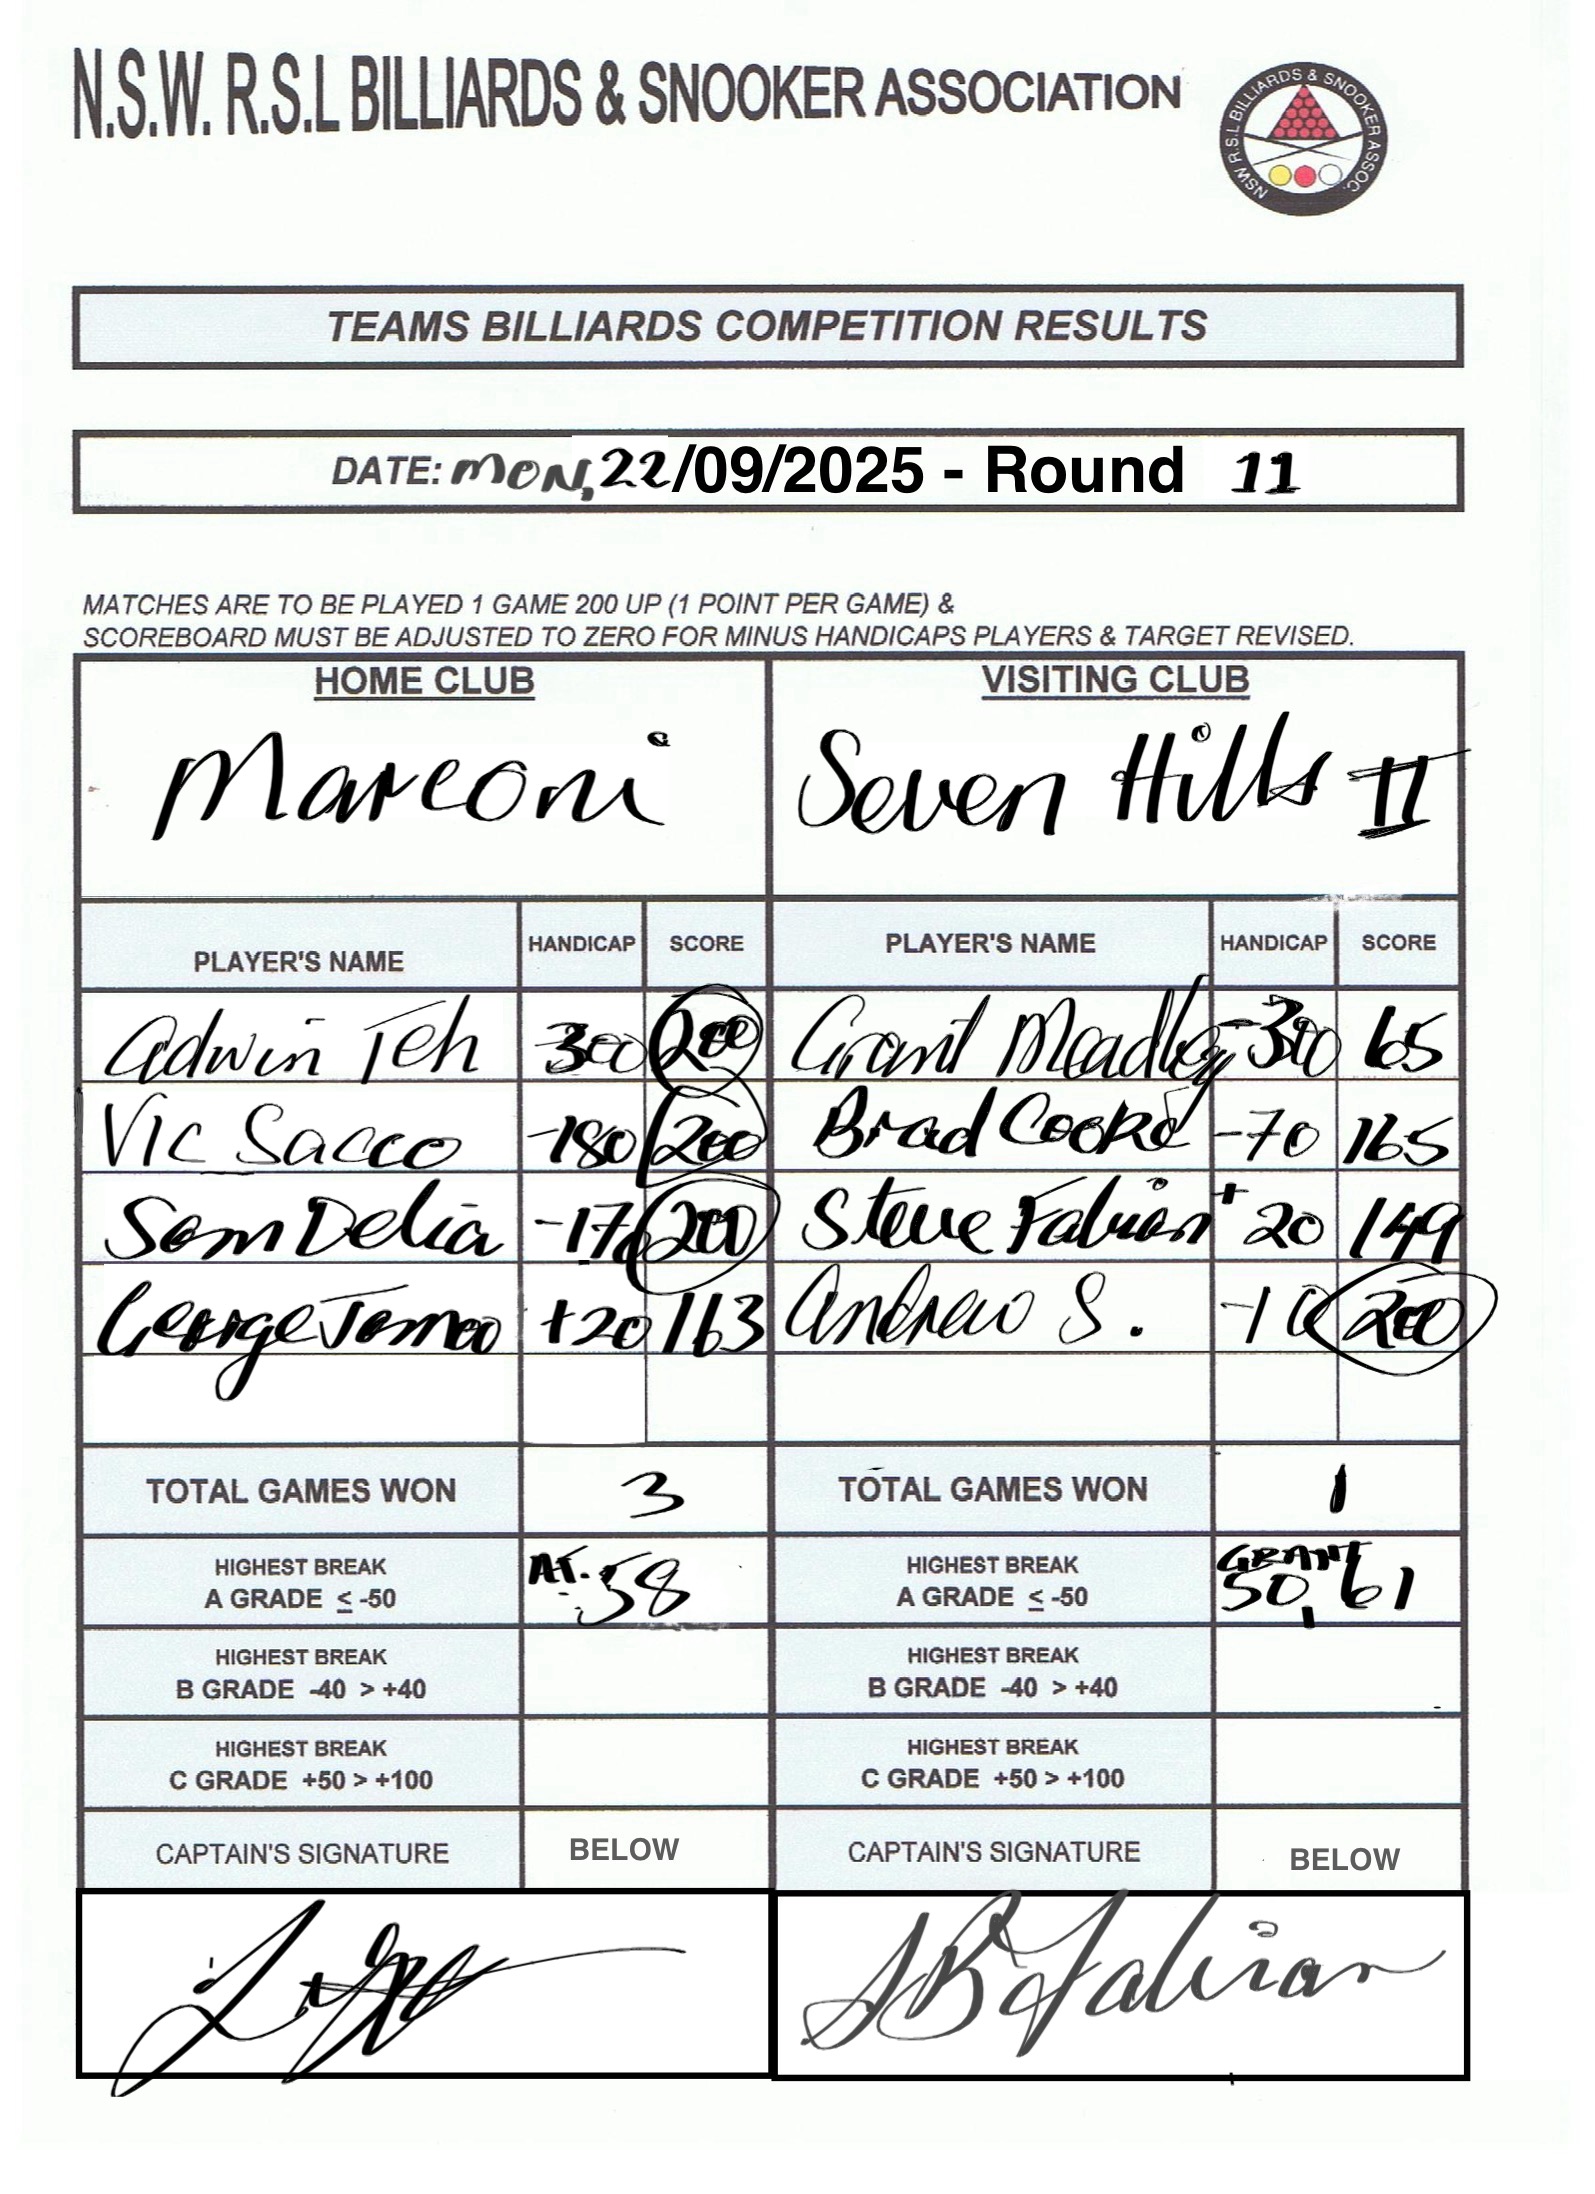 N.S.W. R.S.L BILLIARDS & SNOOKER ASSOCIATION
NSW R.S.L BILLIARDS & SNOOKER ASSOC.
TEAMS BILLIARDS COMPETITION RESULTS
DATE: MON, 22/09/2025 - Round 11
MATCHES ARE TO BE PLAYED 1 GAME 200 UP (1 POINT PER GAME) &
SCOREBOARD MUST BE ADJUSTED TO ZERO FOR MINUS HANDICAPS PLAYERS & TARGET REVISED.
HOME CLUB VISITING CLUB
Marconi Seven Hills II
PLAYER'S NAME HANDICAP SCORE PLAYER'S NAME HANDICAP SCORE
Adwin Teh 300 200 Grant -300 165
Vic Sacco -180 200 Brad Cooke -70 165
Sam Delia 200 Steve Fabian +20 149
George +20 163 Andrew S. -10 200
TOTAL GAMES WON 3 TOTAL GAMES WON 1
HIGHEST BREAK A.T. 58 HIGHEST BREAK GRANT
A GRADE ≤ -50 A GRADE ≤ -50 50, 61
HIGHEST BREAK HIGHEST BREAK
B GRADE -40 > +40 B GRADE -40 > +40
HIGHEST BREAK HIGHEST BREAK
C GRADE +50 > +100 C GRADE +50 > +100
CAPTAIN'S SIGNATURE BELOW CAPTAIN'S SIGNATURE BELOW
SB Fabian